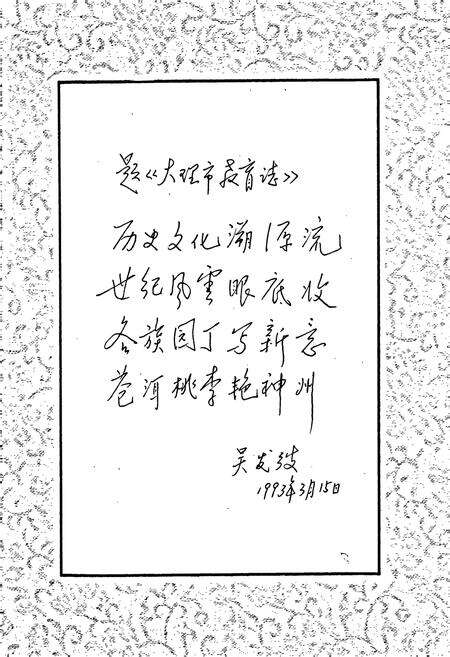 题《大理市教育誌》
历史文化溯源流
世纪风雲眼底收
各族园丁写新意
苍洱桃李艳神州
吴发
1993年3月15日